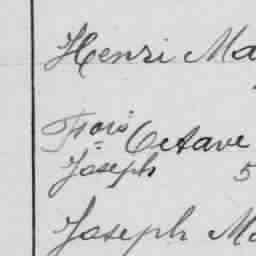 Henri Ma
Frois Octave
Joseph 5
Joseph Ma